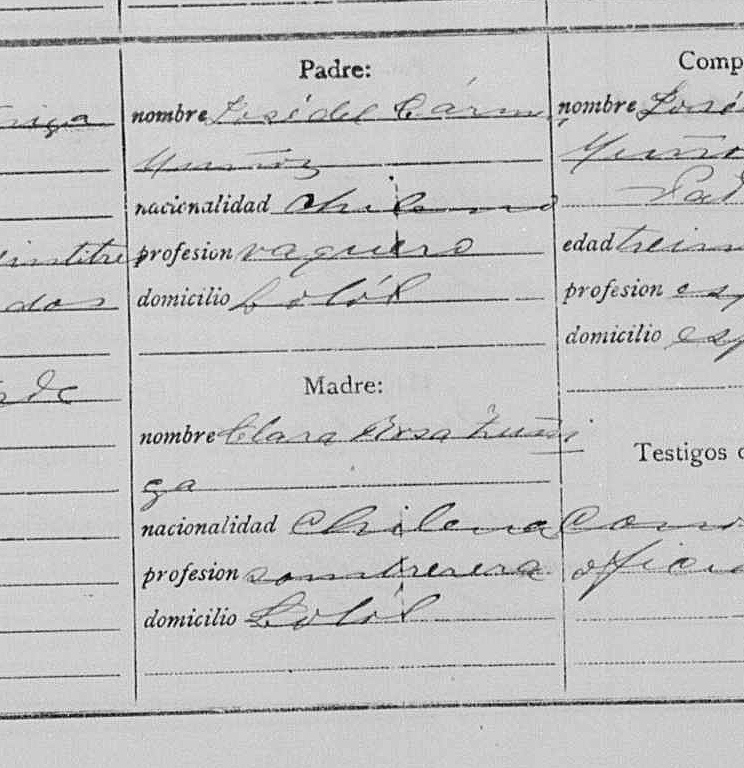 Padre:
nombre José del Cárm
Muñoz
nacionalidad chileno
profesion vaquero
domicilio Lolól
Madre:
nombre Clara Rosa Zuñi
ga
nacionalidad Chilena
profesion sombrerera
domicilio Lolól
Comp
nombre José
Muño
Pad
edad trein
profesion esp
domicilio esp
Testigos
Com
oficia
dos